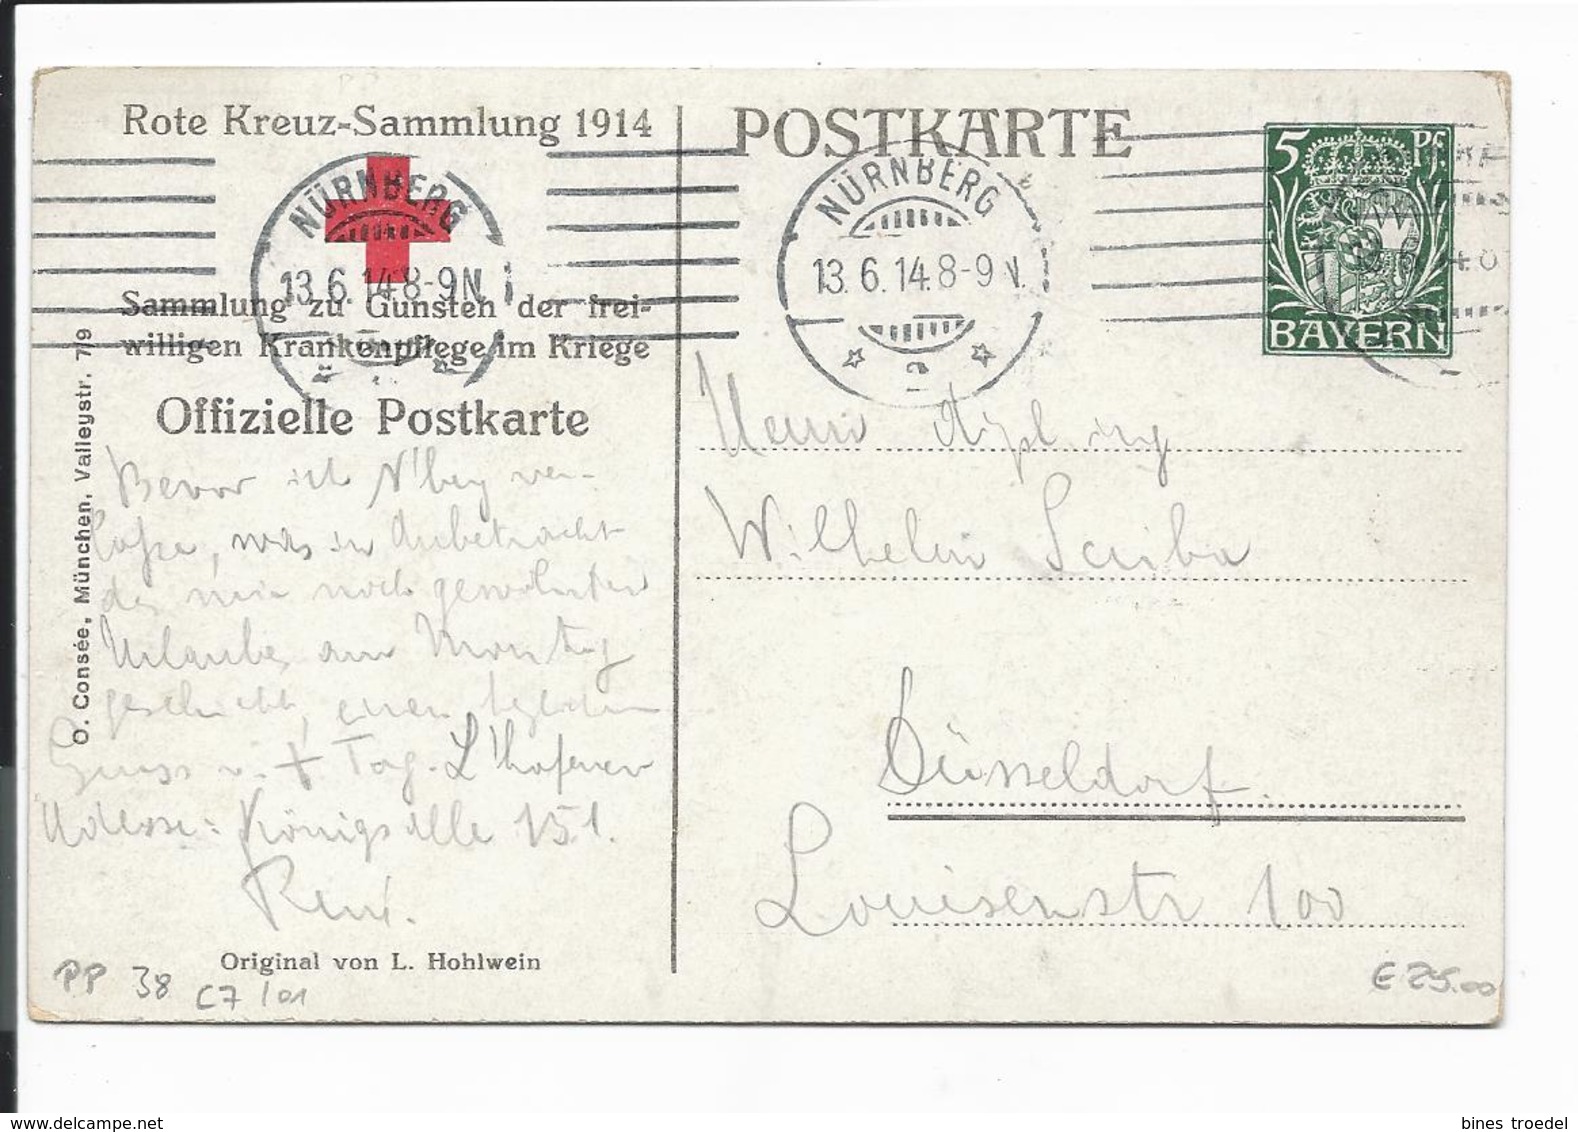 Rote Kreuz-Sammlung 1914
Sammlung zu Gunsten der frei-
willigen Krankenpflege im Kriege
Offizielle Postkarte
NÜRNBERG
13.6.14.8-9N.
O. Consée, München, Valleystr. 7/9
Bevor ich N'berg ver-
lasse, was in Anbetracht
des mir noch gewährten
Urlaubs am Montag
geschieht, einen
Gruss u. Tag. L'hafener
Adresse: Königsallee 151.
Original von L. Hohlwein
PP 38 C7/01
POSTKARTE
NÜRNBERG
13.6.14.8-9N.
2
5 Pf.
BAYERN
Herrn Dipl. ing
Wilhelm Scriba
Düsseldorf.
Louisenstr 100
€ 25.00
bines troedel
www.delcampe.net